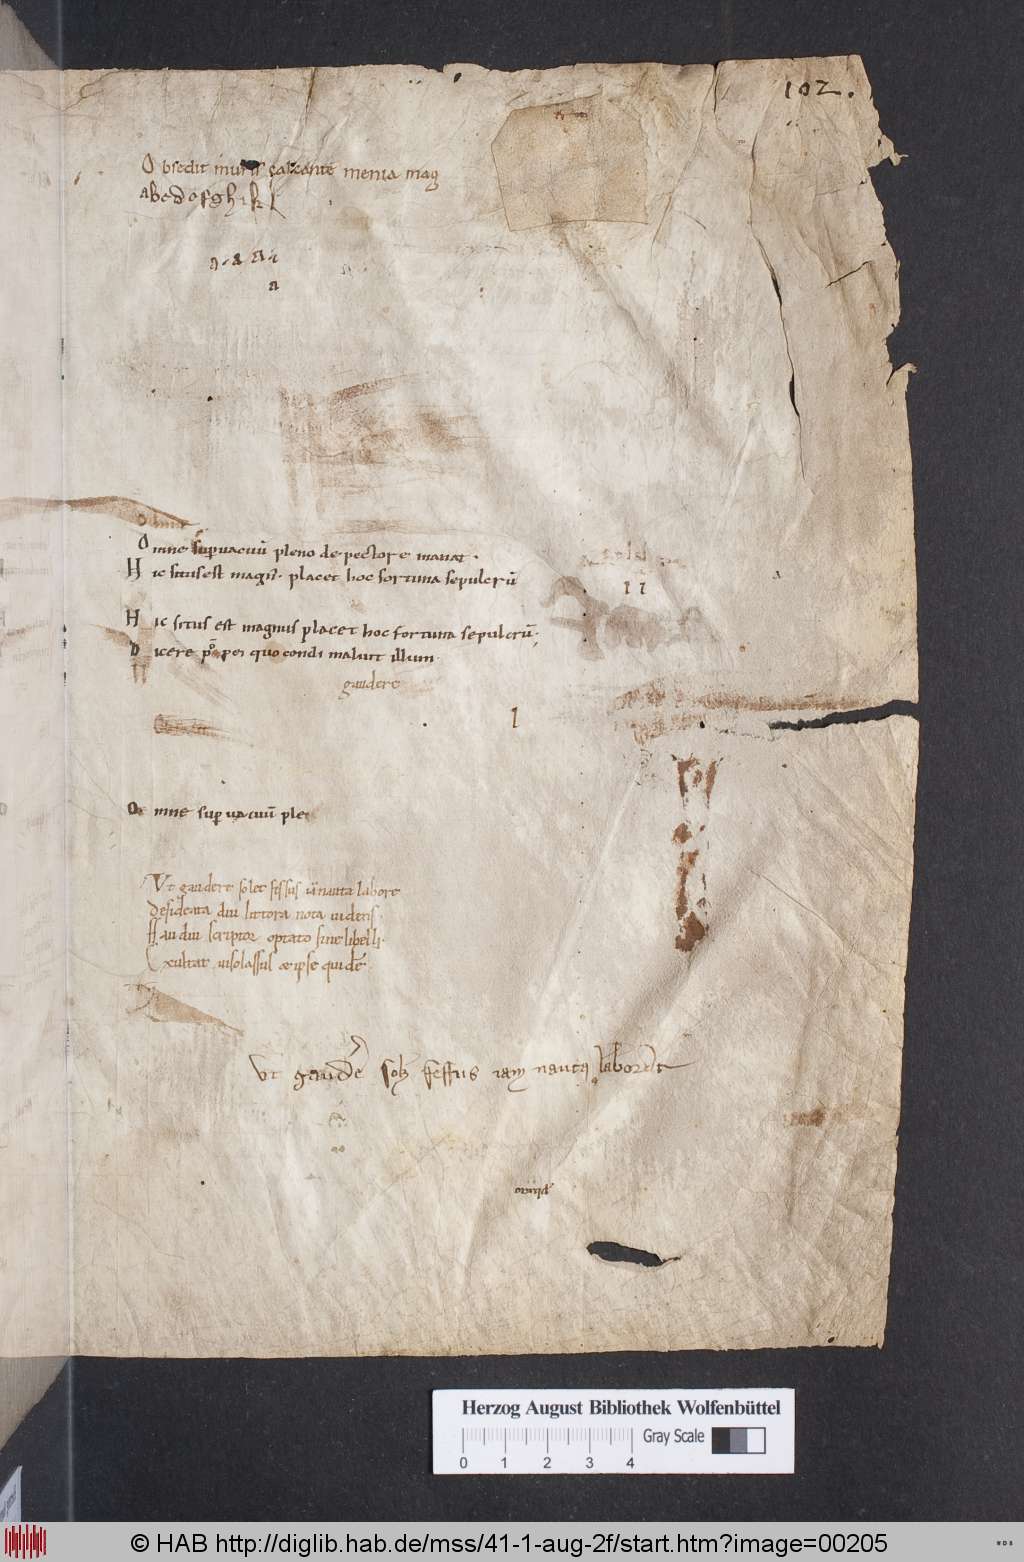 102.
O bsedit muris calcante menia mag
abcdefghikl
a a a
a
Omne
O mne supuacuū pleno de pectore manat.
H ic situs est magn. placet hoc fortuna sepulcrū
11
H ic situs est magnus placet hoc fortuna sepulcrū.
D icere po pei quo condi maluit illum.
gaudere
l
O mne sup uacuū ple
Vt gaudere solet fessus nauta labore
desiderata diu littora nota uidens.
Haud scriptor optato fine libelli.
Exultat uiso lassus et ipse quidē.
Vt gaudē sol3 fessus iam nauta labore
Herzog August Bibliothek Wolfenbüttel
Gray Scale
0 1 2 3 4
© HAB http://diglib.hab.de/mss/41-1-aug-2f/start.htm?image=00205